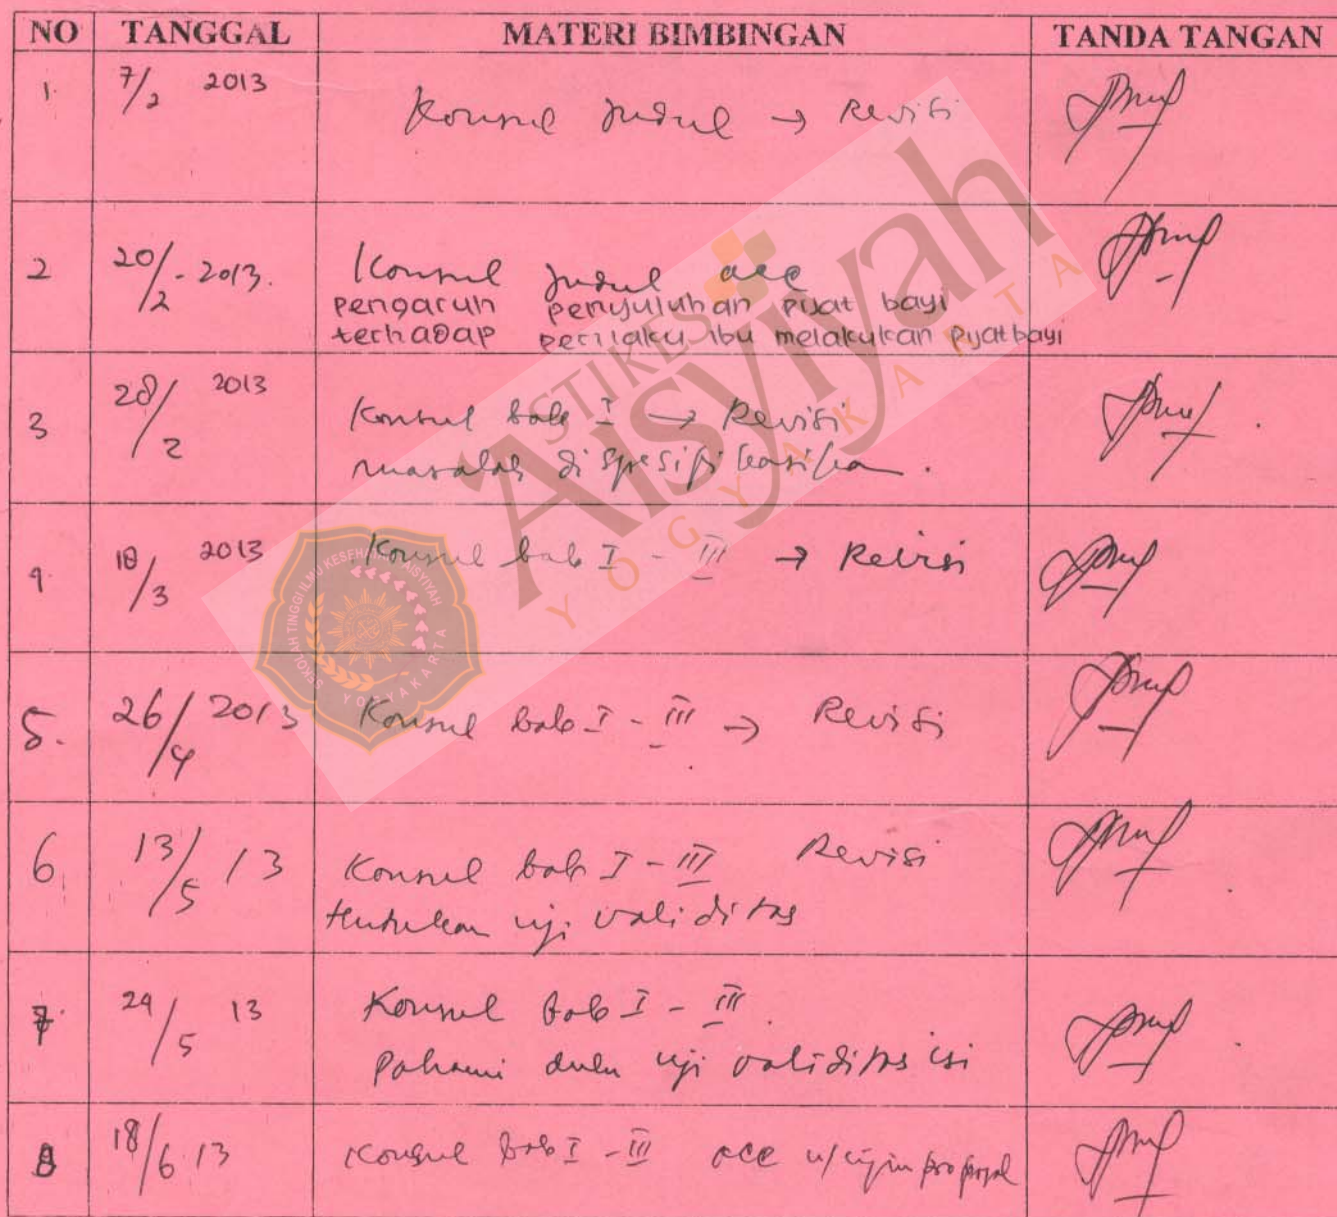 NO TANGGAL MATERI BIMBINGAN TANDA TANGAN
1. 7/2 2013 Konsul Judul → Revisi
2 20/2 - 2013. Konsul Judul acc
pengaruh penyuluhan pijat bayi
terhadap perilaku ibu melakukan pijat bayi
3 28/2 2013 Konsul bab I → Revisi
masalah di spesifikasikan.
4. 18/3 2013 Konsul bab I - III → Revisi
5. 26/4 2013 Konsul bab I - III → Revisi
6. 13/5 13 Konsul bab I - III Revisi
tentukan uji validitas
7. 24/5 13 Konsul bab I - III.
Pahami dulu uji validitas isi
8 18/6 13 Konsul bab I - III acc u/ ujian proposal
STIKES
'Aisyiyah
YOGYAKARTA
SEKOLAH TINGGI ILMU KESEHATAN 'AISYIYAH
YOGYAKARTA